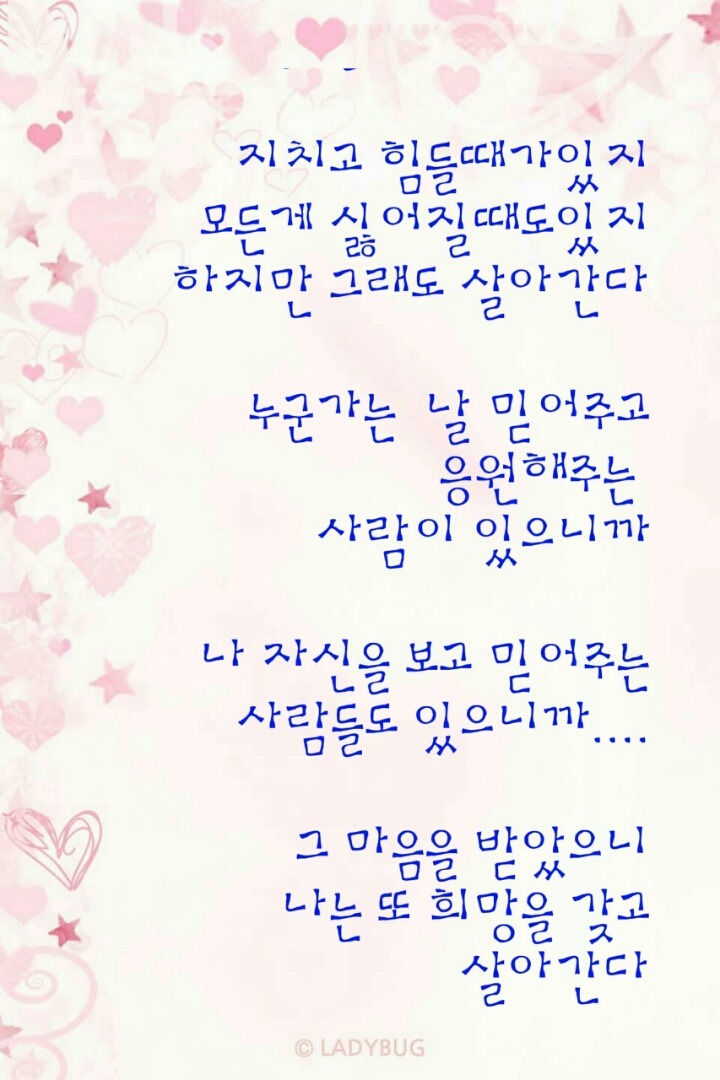 지치고 힘들때가있지
모든게 싫어질때도있지
하지만 그래도 살아간다
누군가는 날 믿어주고
응원해주는
사람이 있으니까
나 자신을 보고 믿어주는
사람들도 있으니까....
그 마음을 받았으니
나는 또 희망을 갖고
살아간다
© LADYBUG